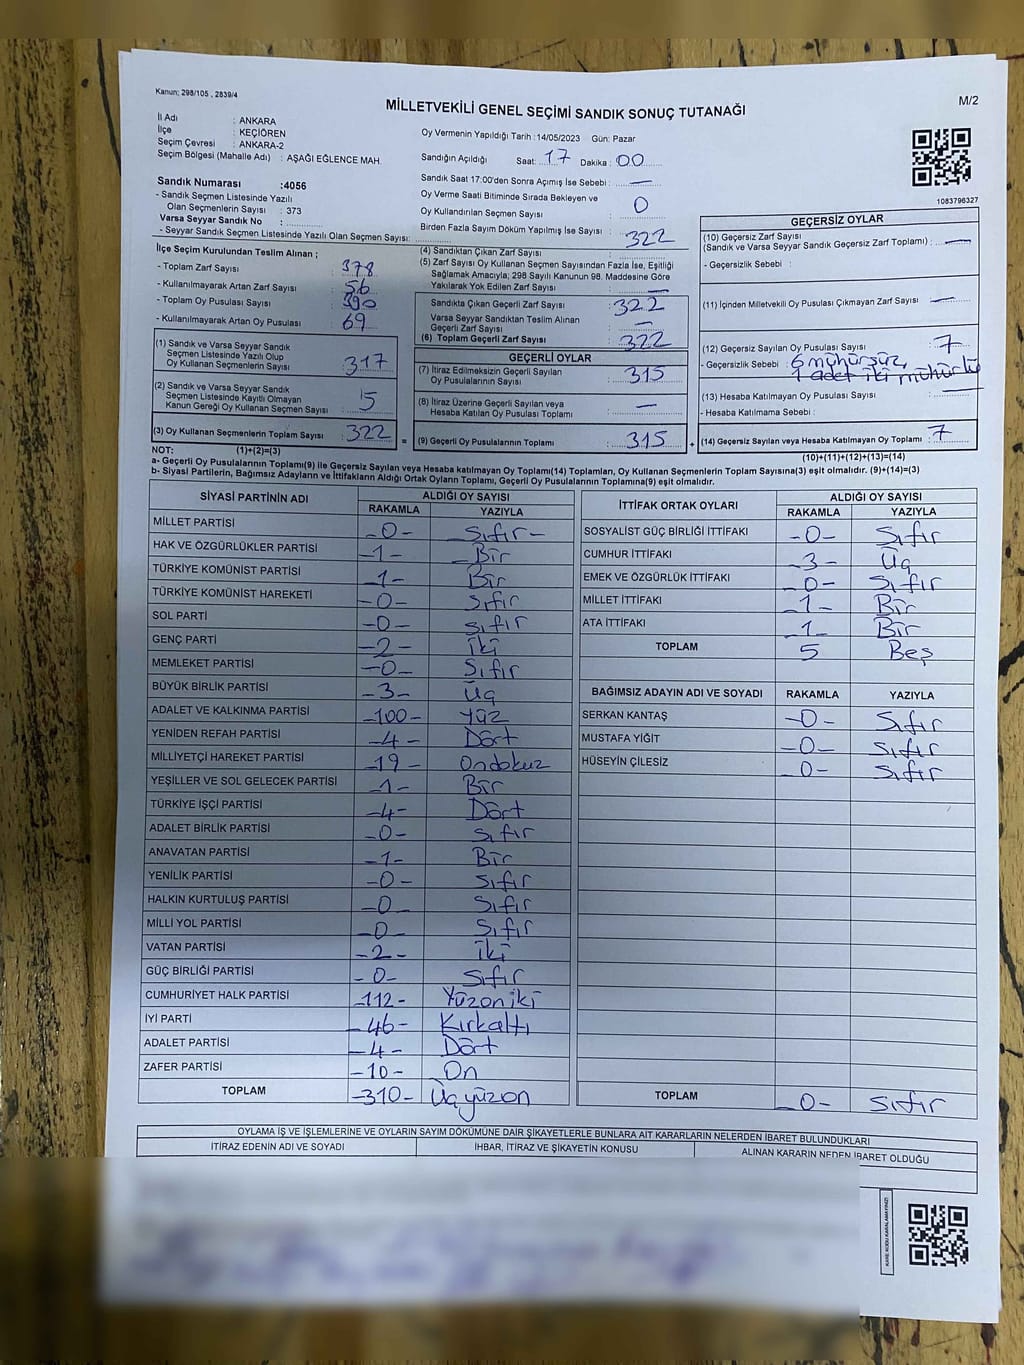 Kanun; 298/105 , 2839/4
MİLLETVEKİLİ GENEL SEÇİMİ SANDIK SONUÇ TUTANAĞI
M/2
İl Adı : ANKARA
İlçe : KEÇİÖREN
Seçim Çevresi : ANKARA-2
Seçim Bölgesi (Mahalle Adı) : AŞAĞI EĞLENCE MAH.
Oy Vermenin Yapıldığı Tarih : 14/05/2023 Gün: Pazar
Sandığın Açıldığı Saat: 17 Dakika : 00
Sandık Saat 17:00'den Sonra Açımış İse Sebebi : —
Oy Verme Saati Bitiminde Sırada Bekleyen ve
Oy Kullandırılan Seçmen Sayısı : 0
Birden Fazla Sayım Döküm Yapılmış İse Sayısı : 322
1083798327
Sandık Numarası :4056
- Sandık Seçmen Listesinde Yazılı
Olan Seçmenlerin Sayısı : 373
Varsa Seyyar Sandık No :
- Seyyar Sandık Seçmen Listesinde Yazılı Olan Seçmen Sayısı:
İlçe Seçim Kurulundan Teslim Alınan ;
- Toplam Zarf Sayısı : 378
- Kullanılmayarak Artan Zarf Sayısı : 56
- Toplam Oy Pusulası Sayısı : 390
- Kullanılmayarak Artan Oy Pusulası : 69
(1) Sandık ve Varsa Seyyar Sandık
Seçmen Listesinde Yazılı Olup
Oy Kullanan Seçmenlerin Sayısı : 317
(2) Sandık ve Varsa Seyyar Sandık
Seçmen Listesinde Kayıtlı Olmayan
Kanun Gereği Oy Kullanan Seçmen Sayısı : 5
(3) Oy Kullanan Seçmenlerin Toplam Sayısı : 322
(4) Sandıktan Çıkan Zarf Sayısı
(5) Zarf Sayısı Oy Kullanan Seçmen Sayısından Fazla İse, Eşitliği
Sağlamak Amacıyla; 298 Sayılı Kanunun 98. Maddesine Göre
Yakılarak Yok Edilen Zarf Sayısı : —
Sandıkta Çıkan Geçerli Zarf Sayısı : 322
Varsa Seyyar Sandıktan Teslim Alınan
Geçerli Zarf Sayısı : —
(6) Toplam Geçerli Zarf Sayısı : 322
GEÇERLİ OYLAR
(7) İtiraz Edilmeksizin Geçerli Sayılan
Oy Pusulalarının Sayısı : 315
(8) İtiraz Üzerine Geçerli Sayılan veya
Hesaba Katılan Oy Pusulası Toplamı : —
= (9) Geçerli Oy Pusulalarının Toplamı : 315
GEÇERSİZ OYLAR
(10) Geçersiz Zarf Sayısı
(Sandık ve Varsa Seyyar Sandık Geçersiz Zarf Toplamı) : —
- Geçersizlik Sebebi :
(11) İçinden Milletvekili Oy Pusulası Çıkmayan Zarf Sayısı : —
(12) Geçersiz Sayılan Oy Pusulası Sayısı : 7
- Geçersizlik Sebebi : 6 mühürsüz,
1 adet iki mühürlü
(13) Hesaba Katılmayan Oy Pusulası Sayısı :
- Hesaba Katılmama Sebebi :
+ (14) Geçersiz Sayılan veya Hesaba Katılmayan Oy Toplamı : 7
NOT: (1)+(2)=(3)
(10)+(11)+(12)+(13)=(14)
a- Geçerli Oy Pusulalarının Toplamı(9) ile Geçersiz Sayılan veya Hesaba katılmayan Oy Toplamı(14) Toplamları, Oy Kullanan Seçmenlerin Toplam Sayısına(3) eşit olmalıdır. (9)+(14)=(3)
b- Siyasi Partilerin, Bağımsız Adayların ve İttifakların Aldığı Ortak Oyların Toplamı, Geçerli Oy Pusulalarının Toplamına(9) eşit olmalıdır.
SİYASİ PARTİNİN ADI ALDIĞI OY SAYISI
RAKAMLA YAZIYLA
MİLLET PARTİSİ -0- Sıfır-
HAK VE ÖZGÜRLÜKLER PARTİSİ -1- Bir
TÜRKİYE KOMÜNİST PARTİSİ -1- Bir
TÜRKİYE KOMÜNİST HAREKETİ -0- Sıfır
SOL PARTİ -0- Sıfır
GENÇ PARTİ -2- İki
MEMLEKET PARTİSİ -0- Sıfır
BÜYÜK BİRLİK PARTİSİ -3- Üç
ADALET VE KALKINMA PARTİSİ -100- Yüz
YENİDEN REFAH PARTİSİ -4- Dört
MİLLİYETÇİ HAREKET PARTİSİ -19- Ondokuz
YEŞİLLER VE SOL GELECEK PARTİSİ -1- Bir
TÜRKİYE İŞÇİ PARTİSİ -4- Dört
ADALET BİRLİK PARTİSİ -0- Sıfır
ANAVATAN PARTİSİ -1- Bir
YENİLİK PARTİSİ -0- Sıfır
HALKIN KURTULUŞ PARTİSİ -0- Sıfır
MİLLİ YOL PARTİSİ -0- Sıfır
VATAN PARTİSİ -2- İki
GÜÇ BİRLİĞİ PARTİSİ -0- Sıfır
CUMHURİYET HALK PARTİSİ -112- Yüzoniki
İYİ PARTİ -46- Kırkaltı
ADALET PARTİSİ -4- Dört
ZAFER PARTİSİ -10- On
TOPLAM -310- Üçyüzon
İTTİFAK ORTAK OYLARI ALDIĞI OY SAYISI
RAKAMLA YAZIYLA
SOSYALİST GÜÇ BİRLİĞİ İTTİFAKI -0- Sıfır
CUMHUR İTTİFAKI -3- Üç
EMEK VE ÖZGÜRLÜK İTTİFAKI -0- Sıfır
MİLLET İTTİFAKI -1- Bir
ATA İTTİFAKI -1- Bir
TOPLAM 5 Beş
BAĞIMSIZ ADAYIN ADI VE SOYADI RAKAMLA YAZIYLA
SERKAN KANTAŞ -0- Sıfır
MUSTAFA YİĞİT -0- Sıfır
HÜSEYİN ÇİLESİZ -0- Sıfır
TOPLAM -0- Sıfır
OYLAMA İŞ VE İŞLEMLERİNE VE OYLARIN SAYIM DÖKÜMÜNE DAİR ŞİKAYETLERLE BUNLARA AİT KARARLARIN NELERDEN İBARET BULUNDUKLARI
İTİRAZ EDENİN ADI VE SOYADI İHBAR, İTİRAZ VE ŞİKAYETİN KONUSU ALINAN KARARIN NEDEN İBARET OLDUĞU
KARE KODU KARALAMAYINIZ!